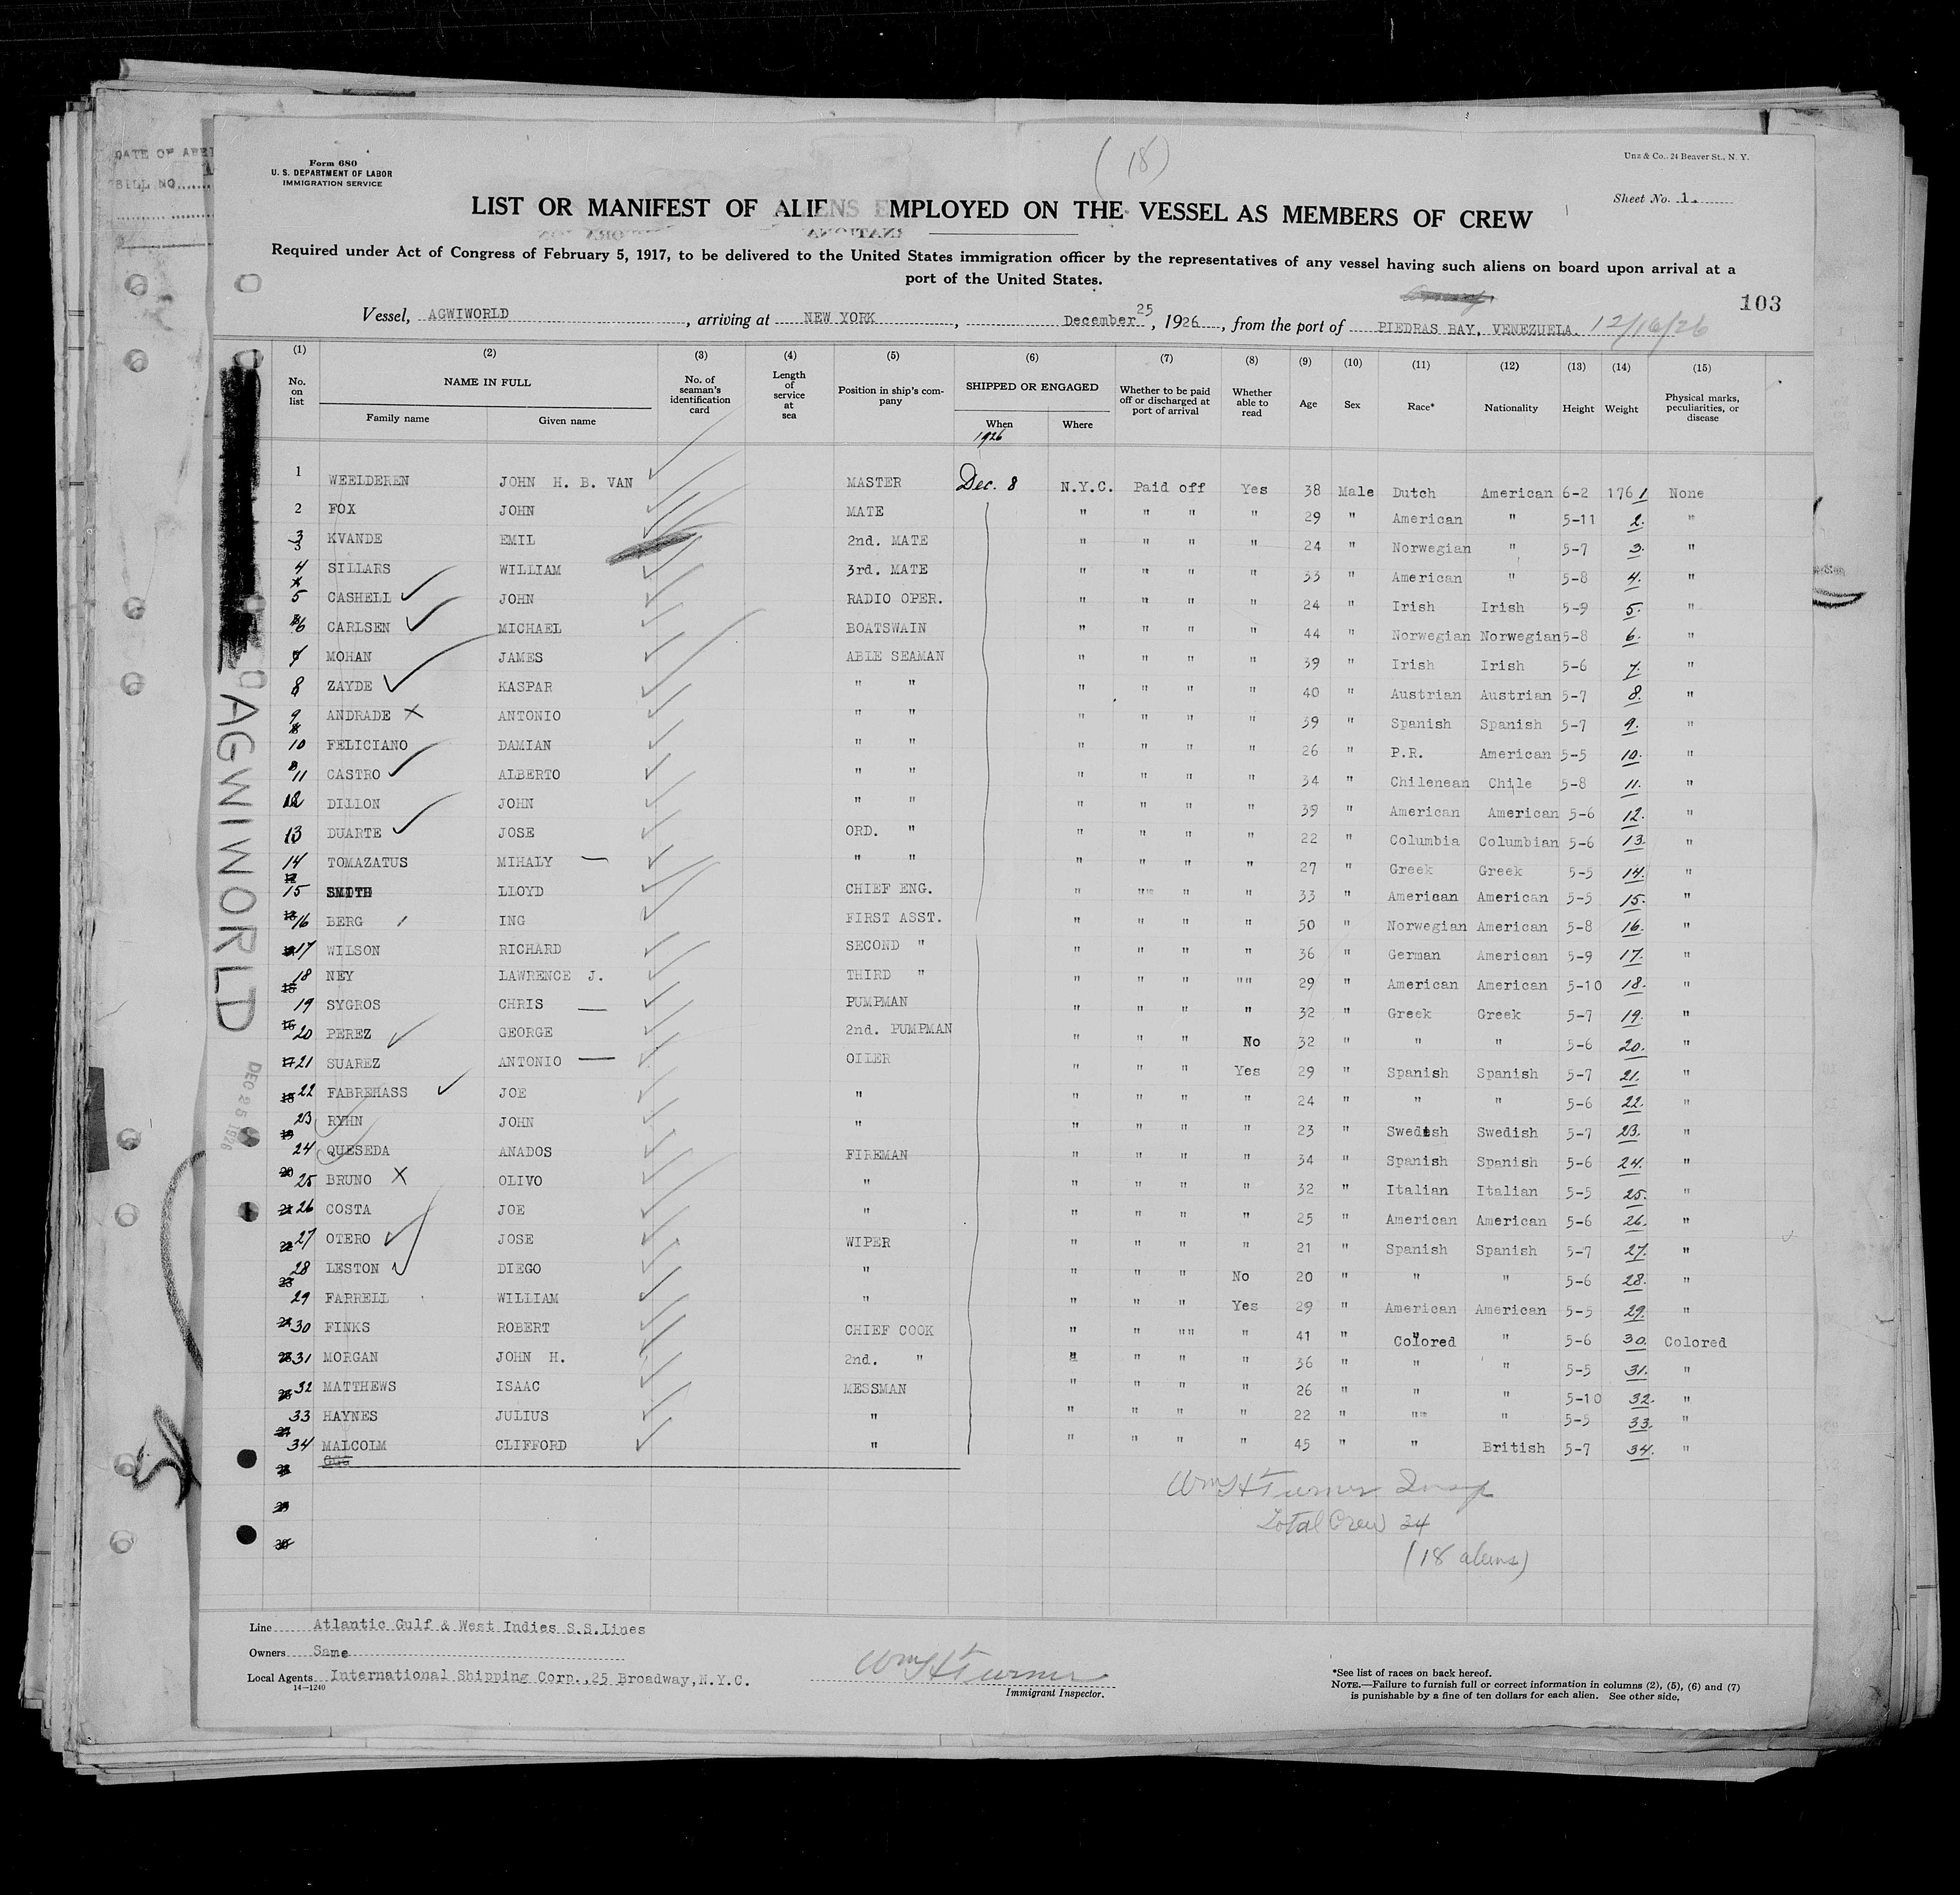 (18)
Form 680
U. S. DEPARTMENT OF LABOR
IMMIGRATION SERVICE
Unz & Co., 24 Beaver St., N. Y.
Sheet No. 1.
LIST OR MANIFEST OF ALIENS EMPLOYED ON THE VESSEL AS MEMBERS OF CREW
Required under Act of Congress of February 5, 1917, to be delivered to the United States immigration officer by the representatives of any vessel having such aliens on board upon arrival at a
port of the United States.
103
Vessel, AGWIWORLD, arriving at NEW YORK, December 25, 1926, from the port of PIEDRAS BAY, VENEZUELA. 12/16/26
(1) (2) (3) (4) (5) (6) (7) (8) (9) (10) (11) (12) (13) (14) (15)
No. on list NAME IN FULL Family name Given name No. of seaman's identification card Length of service at sea Position in ship's company SHIPPED OR ENGAGED When Where Whether to be paid off or discharged at port of arrival Whether able to read Age Sex Race* Nationality Height Weight Physical marks, peculiarities, or disease
1926
1 WEELDEREN JOHN H. B. VAN MASTER Dec. 8 N.Y.C. Paid off Yes 38 Male Dutch American 6-2 176 1 None
2 FOX JOHN MATE " " " " 29 " American " 5-11 2. "
3 KVANDE EMIL 2nd. MATE " " " " 24 " Norwegian " 5-7 3. "
4 SILLARS WILLIAM 3rd. MATE " " " " 33 " American " 5-8 4. "
5 CASHELL JOHN RADIO OPER. " " " " 24 " Irish Irish 5-9 5. "
6 CARLSEN MICHAEL BOATSWAIN " " " " 44 " Norwegian Norwegian 5-8 6. "
7 MOHAN JAMES ABLE SEAMAN " " " " 39 " Irish Irish 5-6 7. "
8 ZAYDE KASPAR " " " " " " 40 " Austrian Austrian 5-7 8. "
9 ANDRADE X ANTONIO " " " " " " 39 " Spanish Spanish 5-7 9. "
10 FELICIANO DAMIAN " " " " " " 26 " P.R. American 5-5 10. "
11 CASTRO ALBERTO " " " " " " 34 " Chilenean Chile 5-8 11. "
12 DILLON JOHN " " " " " " 39 " American American 5-6 12. "
13 DUARTE JOSE ORD. " " " " " 22 " Columbia Columbian 5-6 13. "
14 TOMAZATUS MIHALY — " " " " " " 27 " Greek Greek 5-5 14. "
15 SMITH LLOYD CHIEF ENG. " "" " " 33 " American American 5-5 15. "
16 BERG ING FIRST ASST. " " " " 50 " Norwegian American 5-8 16. "
17 WILSON RICHARD SECOND " " " " " 36 " German American 5-9 17. "
18 NEY LAWRENCE J. THIRD " " " " "" 29 " American American 5-10 18. "
19 SYGROS CHRIS — PUMPMAN " " " " 32 " Greek Greek 5-7 19. "
20 PEREZ GEORGE 2nd. PUMPMAN " " " No 32 " " " 5-6 20. "
21 SUAREZ ANTONIO — OILER " " " Yes 29 " Spanish Spanish 5-7 21. "
22 FABREHASS JOE " " " " " 24 " " " 5-6 22. "
23 RYHN JOHN " " " " " 23 " Swedish Swedish 5-7 23. "
24 QUESEDA ANADOS FIREMAN " " " " 34 " Spanish Spanish 5-6 24. "
25 BRUNO X OLIVO " " " " " 32 " Italian Italian 5-5 25. "
26 COSTA JOE " " " " " 25 " American American 5-6 26. "
27 OTERO JOSE WIPER " " " " 21 " Spanish Spanish 5-7 27. "
28 LESTON DIEGO " " " " No 20 " " " 5-6 28. "
29 FARRELL WILLIAM " " " " Yes 29 " American American 5-5 29. "
30 FINKS ROBERT CHIEF COOK " " "" " 41 " Colored " 5-6 30. Colored
31 MORGAN JOHN H. 2nd. " " " " " 36 " " " 5-5 31. "
32 MATTHEWS ISAAC MESSMAN " " " " 26 " " " 5-10 32. "
33 HAYNES JULIUS " " " " " 22 " "" " 5-5 33. "
34 MALCOLM CLIFFORD " " " " " 45 " " British 5-7 34. "
Wm H Turner Insp
Total Crew 34
(18 aliens)
Line Atlantic Gulf & West Indies S.S.Lines
Owners Same
Local Agents International Shipping Corp.,25 Broadway,N.Y.C.
14—1240
Wm H Turner
Immigrant Inspector.
*See list of races on back hereof.
NOTE.—Failure to furnish full or correct information in columns (2), (5), (6) and (7)
is punishable by a fine of ten dollars for each alien. See other side.
AGWIWORLD
DEC 25 1926
DATE OF
BILL NO.